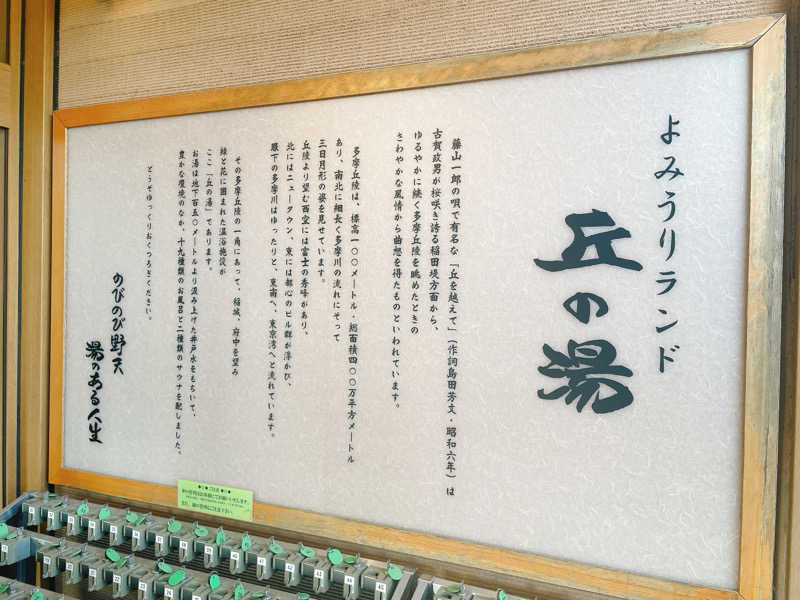 よみうりランド
丘の湯
藤山一郎の唄で有名な「丘を越えて」(作詞島田芳文・昭和六年)は
古賀政男が桜咲き誇る稲田堤方面から、
ゆるやかに続く多摩丘陵を眺めたときの
さわやかな風情から曲想を得たものといわれています。
多摩丘陵は、標高一〇〇メートル・総面積四〇〇万平方メートル
あり、南北に細長く多摩川の流れにそって
三日月形の姿を見せています。
丘陵より望む西空には富士の秀峰があり、
北にはニュータウン、東には都心のビル群が浮かび、
眼下の多摩川はゆったりと、東南へ、東京湾へと流れています。
その多摩丘陵の一角にあって、稲城、府中を望み
緑と花に囲まれた温浴施設が
ここ「丘の湯」であります。
お湯は地下百五〇メートルより汲み上げた井戸水をもちいて、
豊かな環境のなか、十九種類のお風呂と二種類のサウナを配しました。
どうぞゆっくりおくつろぎください。
のびのび野天
湯のある人生